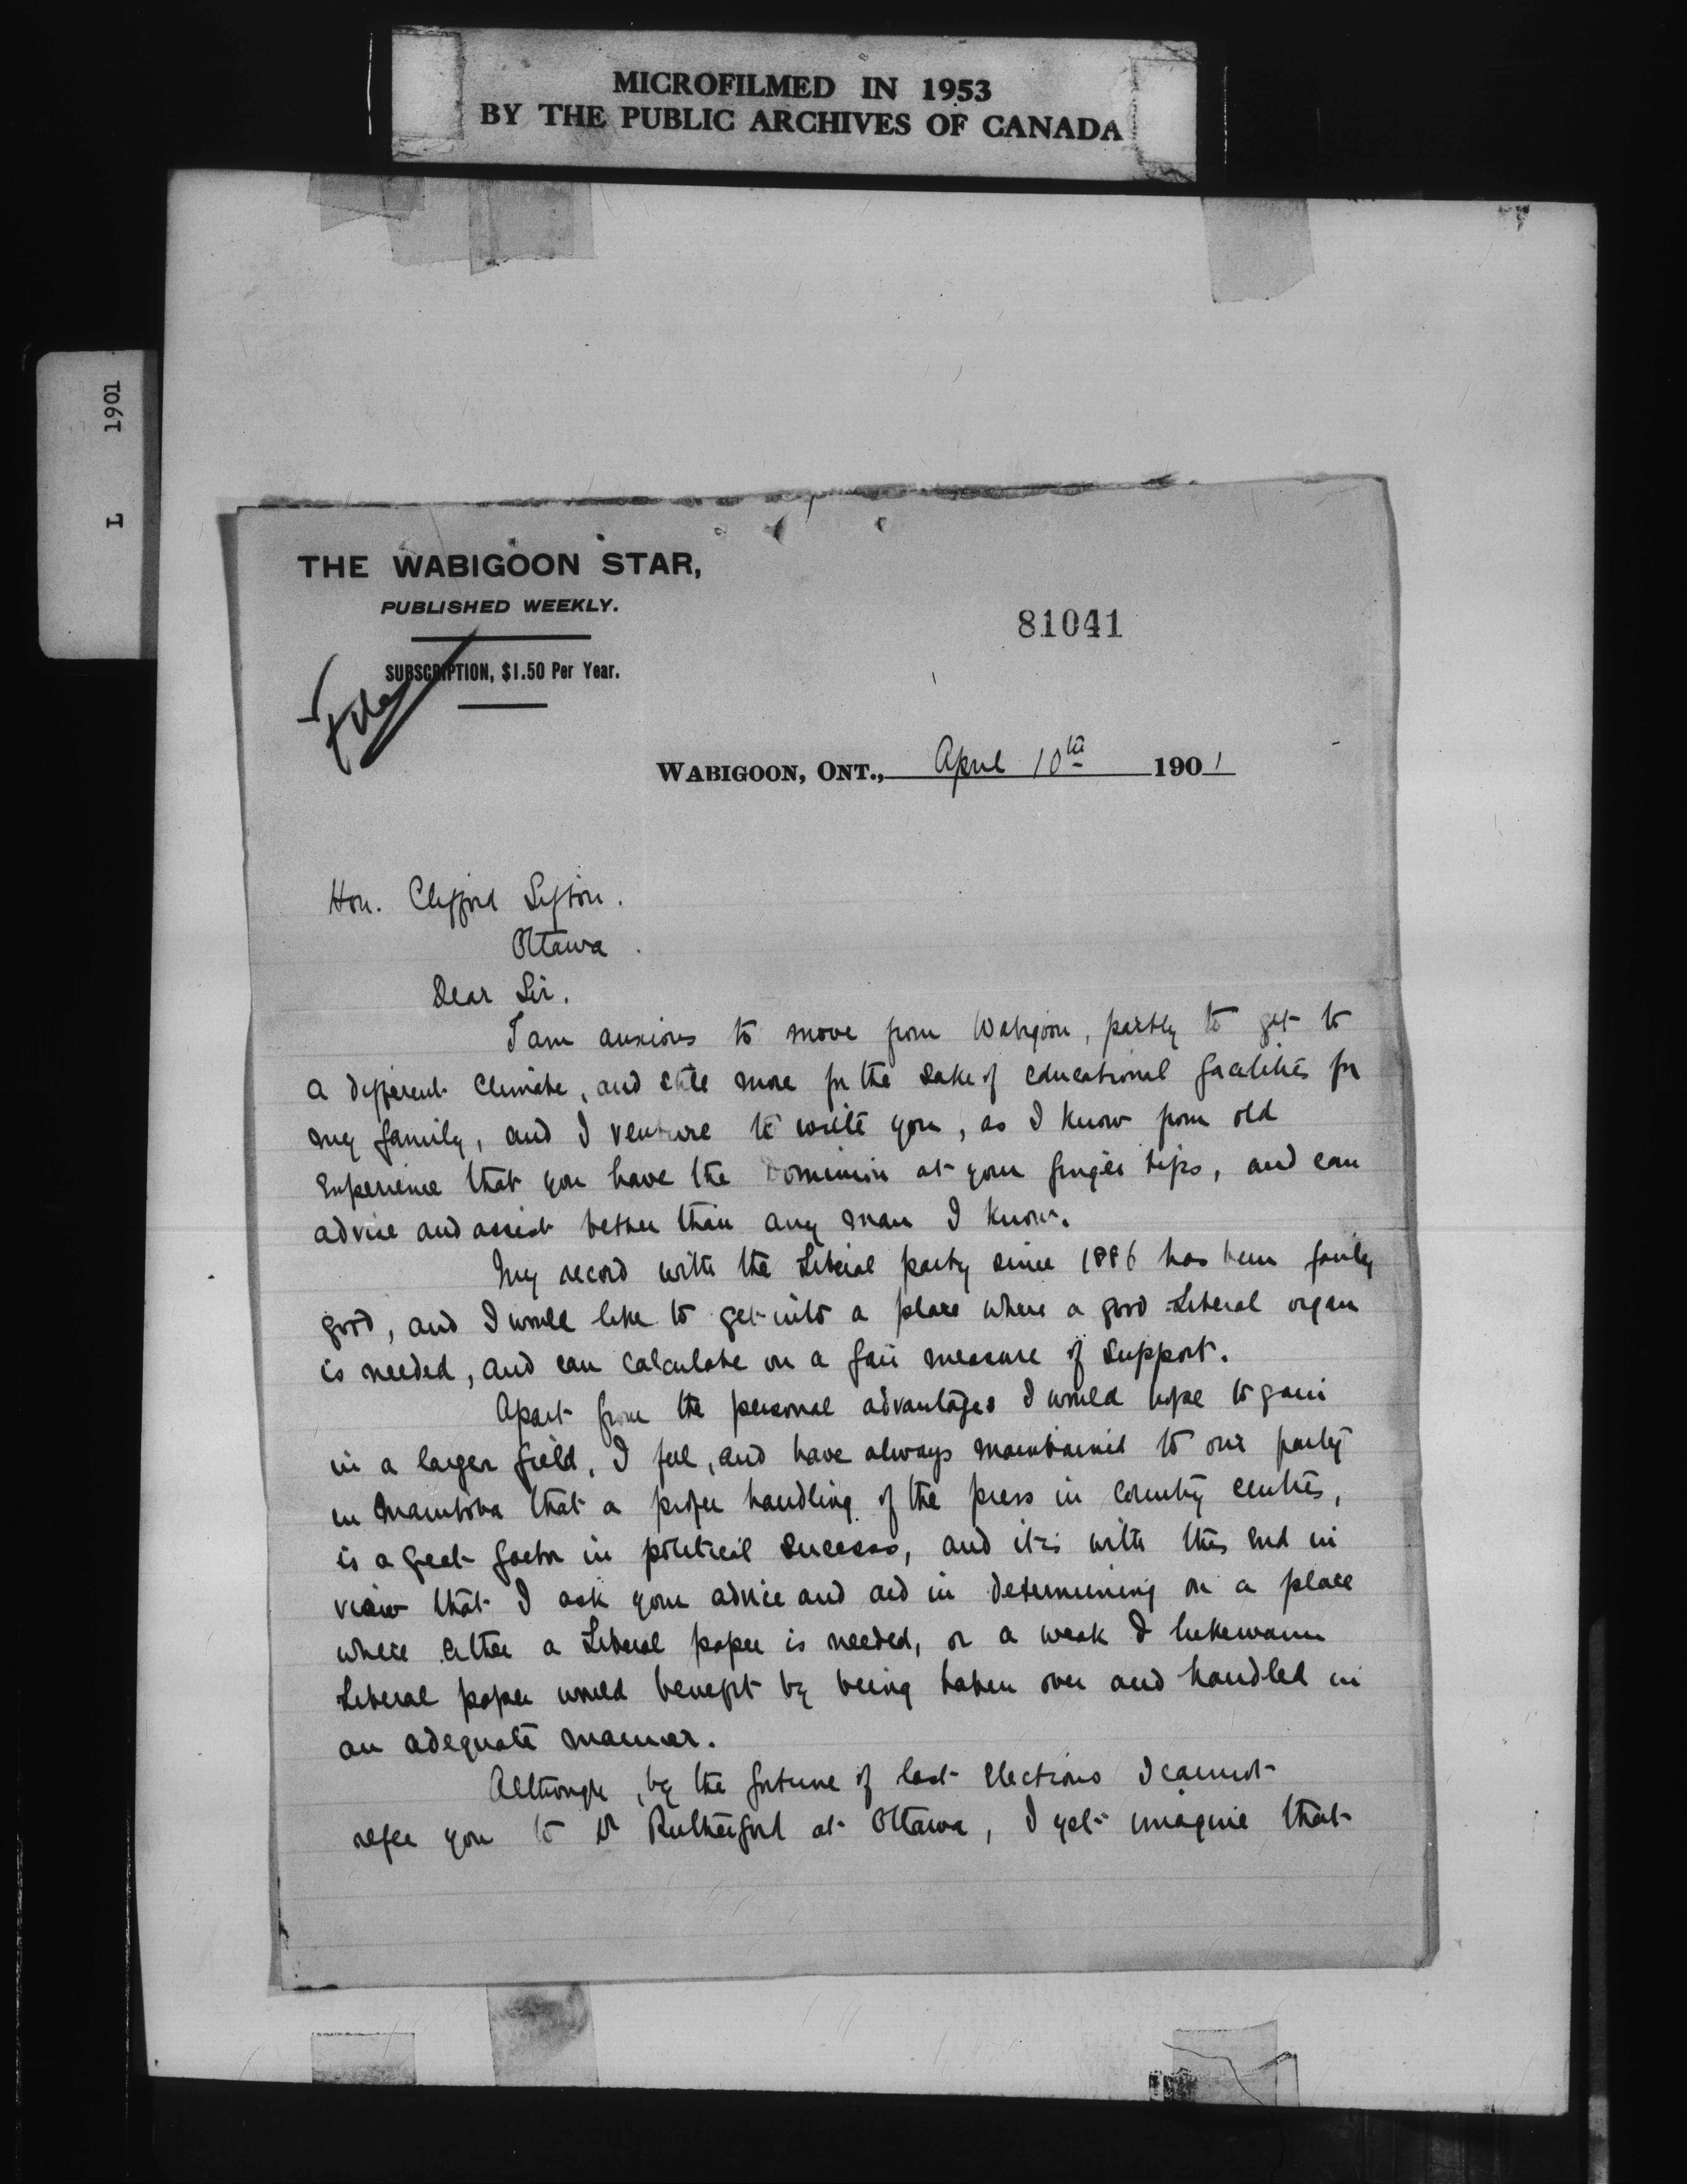 MICROFILMED IN 1953
BY THE PUBLIC ARCHIVES OF CANADA
L 1901
THE WABIGOON STAR,
PUBLISHED WEEKLY.
81041
SUBSCRIPTION, $1.50 Per Year.
File
WABIGOON, ONT., April 10th 1901
Hon. Clifford Sifton.
Ottawa.
Dear Sir.
I am anxious to move from Wabigoon, partly to get to
a different climate, and still more for the sake of educational facilities for
my family, and I venture to write you, as I know from old
experience that you have the Dominion at your finger tips, and can
advise and assist better than any man I know.
My record with the Liberal party since 1886 has been fairly
good, and I would like to get into a place where a good Liberal organ
is needed, and can calculate on a fair measure of support.
Apart from the personal advantages I would hope to gain
in a larger field, I feel, and have always maintained to our party
in Manitoba that a proper handling of the press in country centres,
is a great factor in political success, and it is with this end in
view that I ask your advice and aid in determining on a place
where either a Liberal paper is needed, or a weak & lukewarm
Liberal paper would benefit by being taken over and handled in
an adequate manner.
Although, by the fortune of last elections I cannot
refer you to Dr Rutherford at Ottawa, I yet imagine that